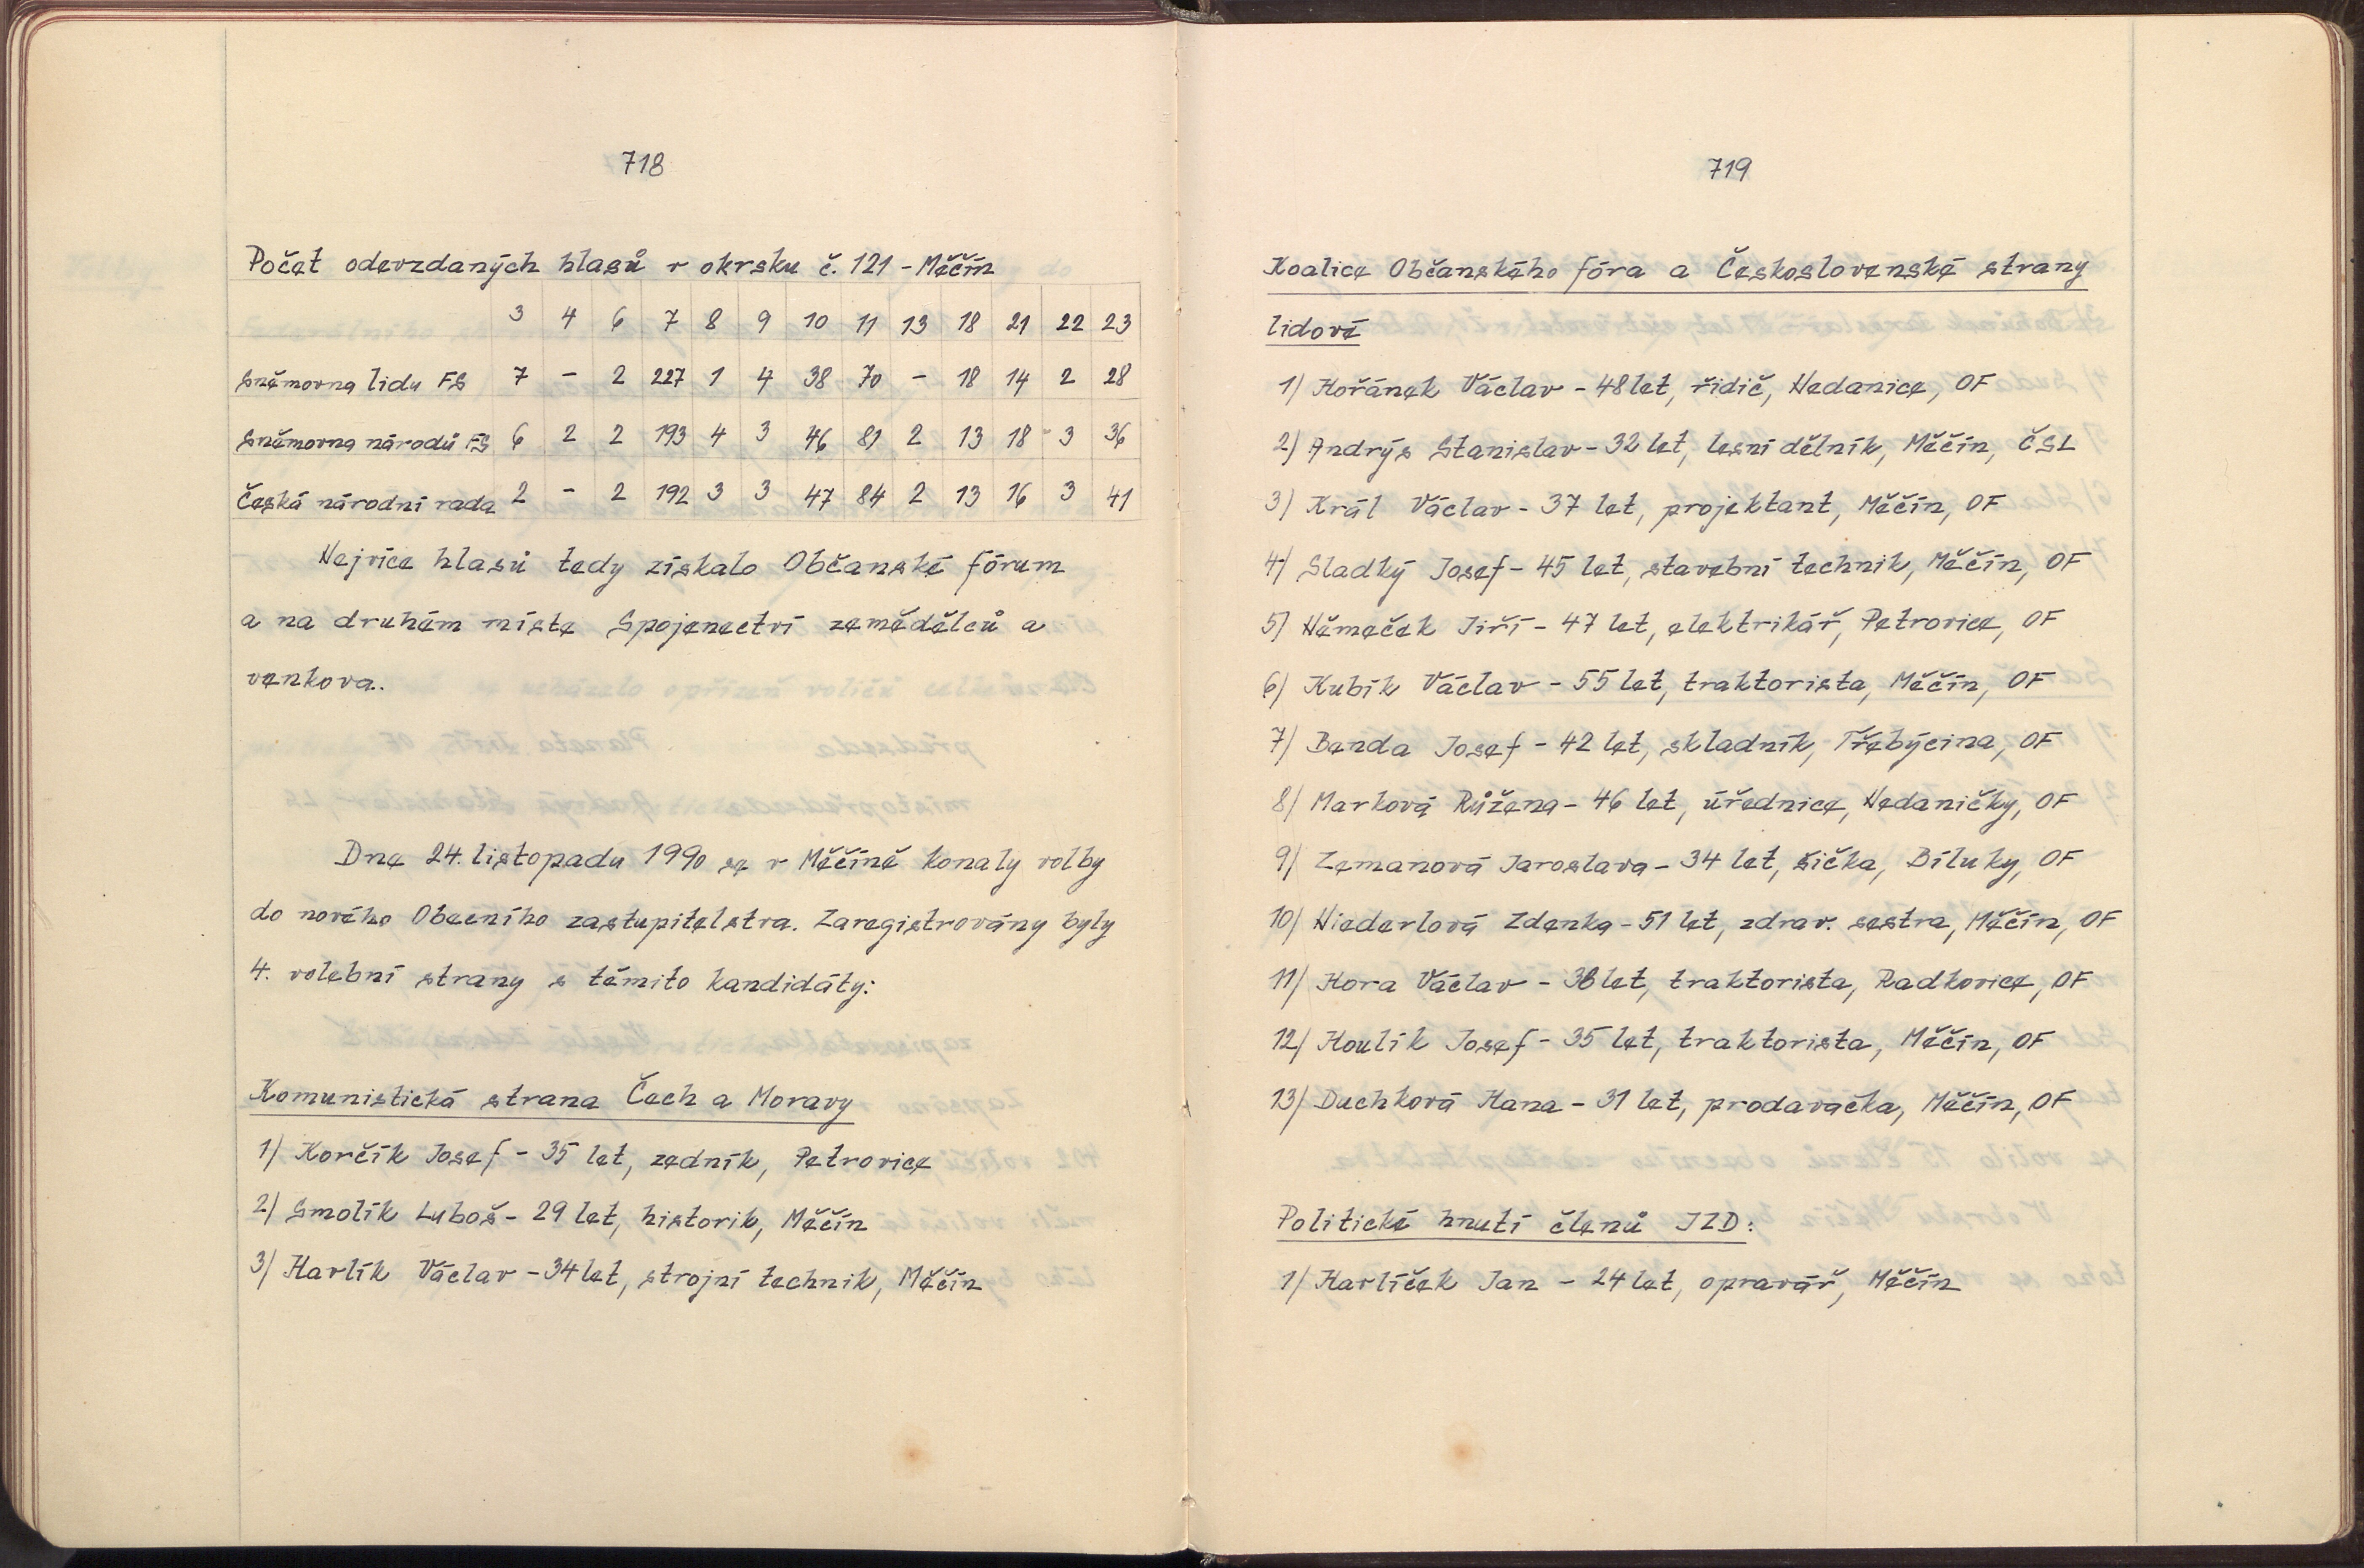 718
Počet odevzdaných hlasů v okrsku č. 121 - Měčín
3 4 6 7 8 9 10 11 13 18 21 22 23
Sněmovna lidu FS 7 - 2 227 1 4 38 70 - 18 14 2 28
Sněmovna národů FS 6 2 2 193 4 3 46 81 2 13 18 3 36
Česká národní rada 2 - 2 192 3 3 47 84 2 13 16 3 41
Nejvíce hlasů tedy získalo Občanské fórum
a na druhém místě Spojenectví zemědělců a
venkova.
Dne 24. listopadu 1990 se v Měčíně konaly volby
do nového Obecního zastupitelstva. Zaregistrovány byly
4. volební strany s těmito kandidáty:
Komunistická strana Čech a Moravy
1) Korčík Josef - 35 let, zedník, Petrovice
2) Smolík Luboš - 29 let, historik, Měčín
3) Havlík Václav - 34 let, strojní technik, Měčín
719
Koalice Občanského fóra a Československé strany
lidové
1) Hořánek Václav - 48 let, řidič, Nedanice, OF
2) Andrýs Stanislav - 32 let, lesní dělník, Měčín, ČSL
3) Král Václav - 37 let, projektant, Měčín, OF
4) Sladký Josef - 45 let, stavební technik, Měčín, OF
5) Němeček Jiří - 47 let, elektrikář, Petrovice, OF
6) Kubík Václav - 55 let, traktorista, Měčín, OF
7) Benda Josef - 42 let, skladník, Třebýcina, OF
8) Marková Růžena - 46 let, úřednice, Nedaničky, OF
9) Zemanová Jaroslava - 34 let, šička, Bíluky, OF
10) Niederlová Zdenka - 51 let, zdrav. sestra, Měčín, OF
11) Hora Václav - 38 let, traktorista, Radkovice, OF
12) Houlík Josef - 35 let, traktorista, Měčín, OF
13) Duchková Hana - 31 let, prodavačka, Měčín, OF
Politické hnutí členů JZD:
1) Havlíček Jan - 24 let, opravář, Měčín